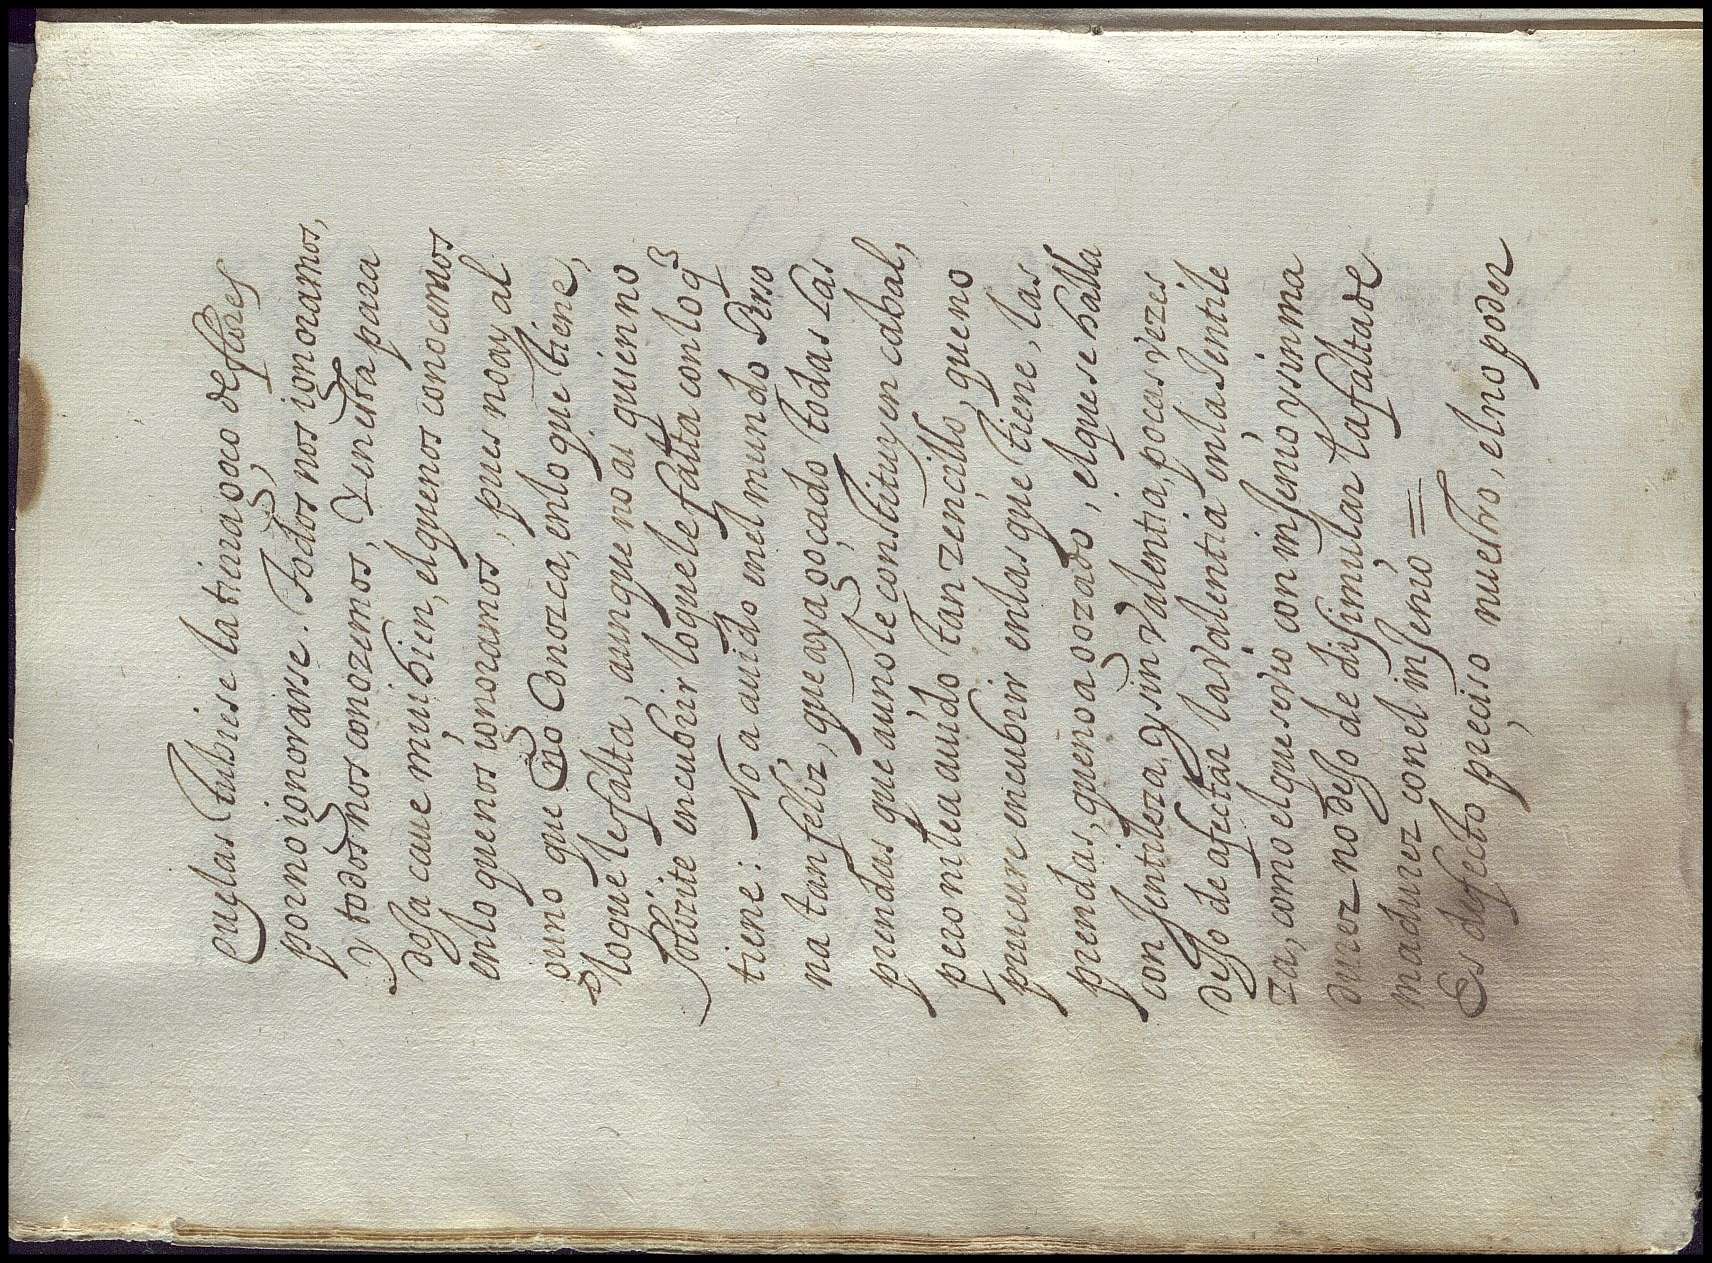 cuglas tubiese la tinaga, o co de flores
por no ignorarse. Todos nos ignoramos,
y todos nos conozemos, y en esta para
doja caue mui bien, el que nos conocemos
en lo que nos ignoramos, pues no ay al
guno que no conozca, en lo que tiene,
lo que le falta, aunque no ai quien no
solizite encubrir lo que le falta con lo q̃
tiene: No a auido en el mundo Perso
na tan feliz, que aya gocado todas las
prendas que aun no le constituyen cabal,
pero ni lea auido tan zencillo, que no
procure encubrir en las que tiene, las
prendas, que no a gozado, el que se halla
con Jentileza, y sin valentia, pocas vezes
dejo de afectar la valentia en la Jentile
za, como el que se vio con injenio y sin ma
durez no dejo de disimular la falta de
madurez con el injenio =
Es defecto preciso nuestro, el no poder